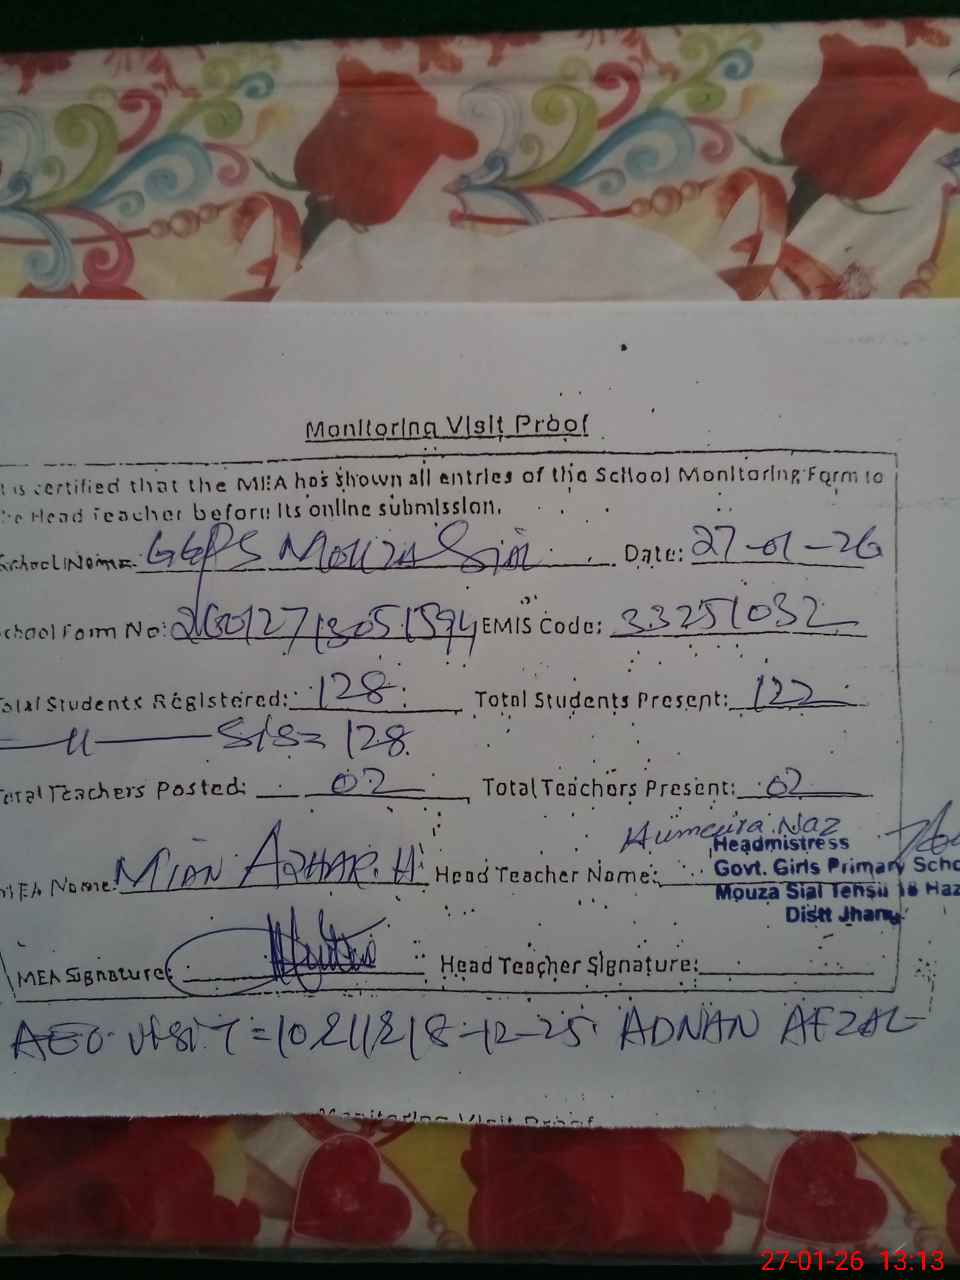 Monitoring Visit Proof
t is certified that the MEA has shown all entries of the School Monitoring Form to
he Head Teacher before its online submission.
School Name: GGPS MOUZA Sial Date: 27-01-26
chool Form No: 26012713051594 EMIS Code: 33251032
otal Students Registered: 128 Total Students Present: 122
— 11 — SIS = 128
otal Teachers Posted: 02 Total Teachers Present: 02
MEA Name: MIAN AZHAR. H Head Teacher Name: Humaira Naz
Headmistress
Govt. Girls Primary Scho
Mouza Sial Tehsil 18 Haz
Distt Jhang
MEA Signature: Head Teacher Signature:
AEO VISIT = 10 & 11 & 18-12-25 ADNAN AFZAL
Monitoring Visit Proof
27-01-26 13:13